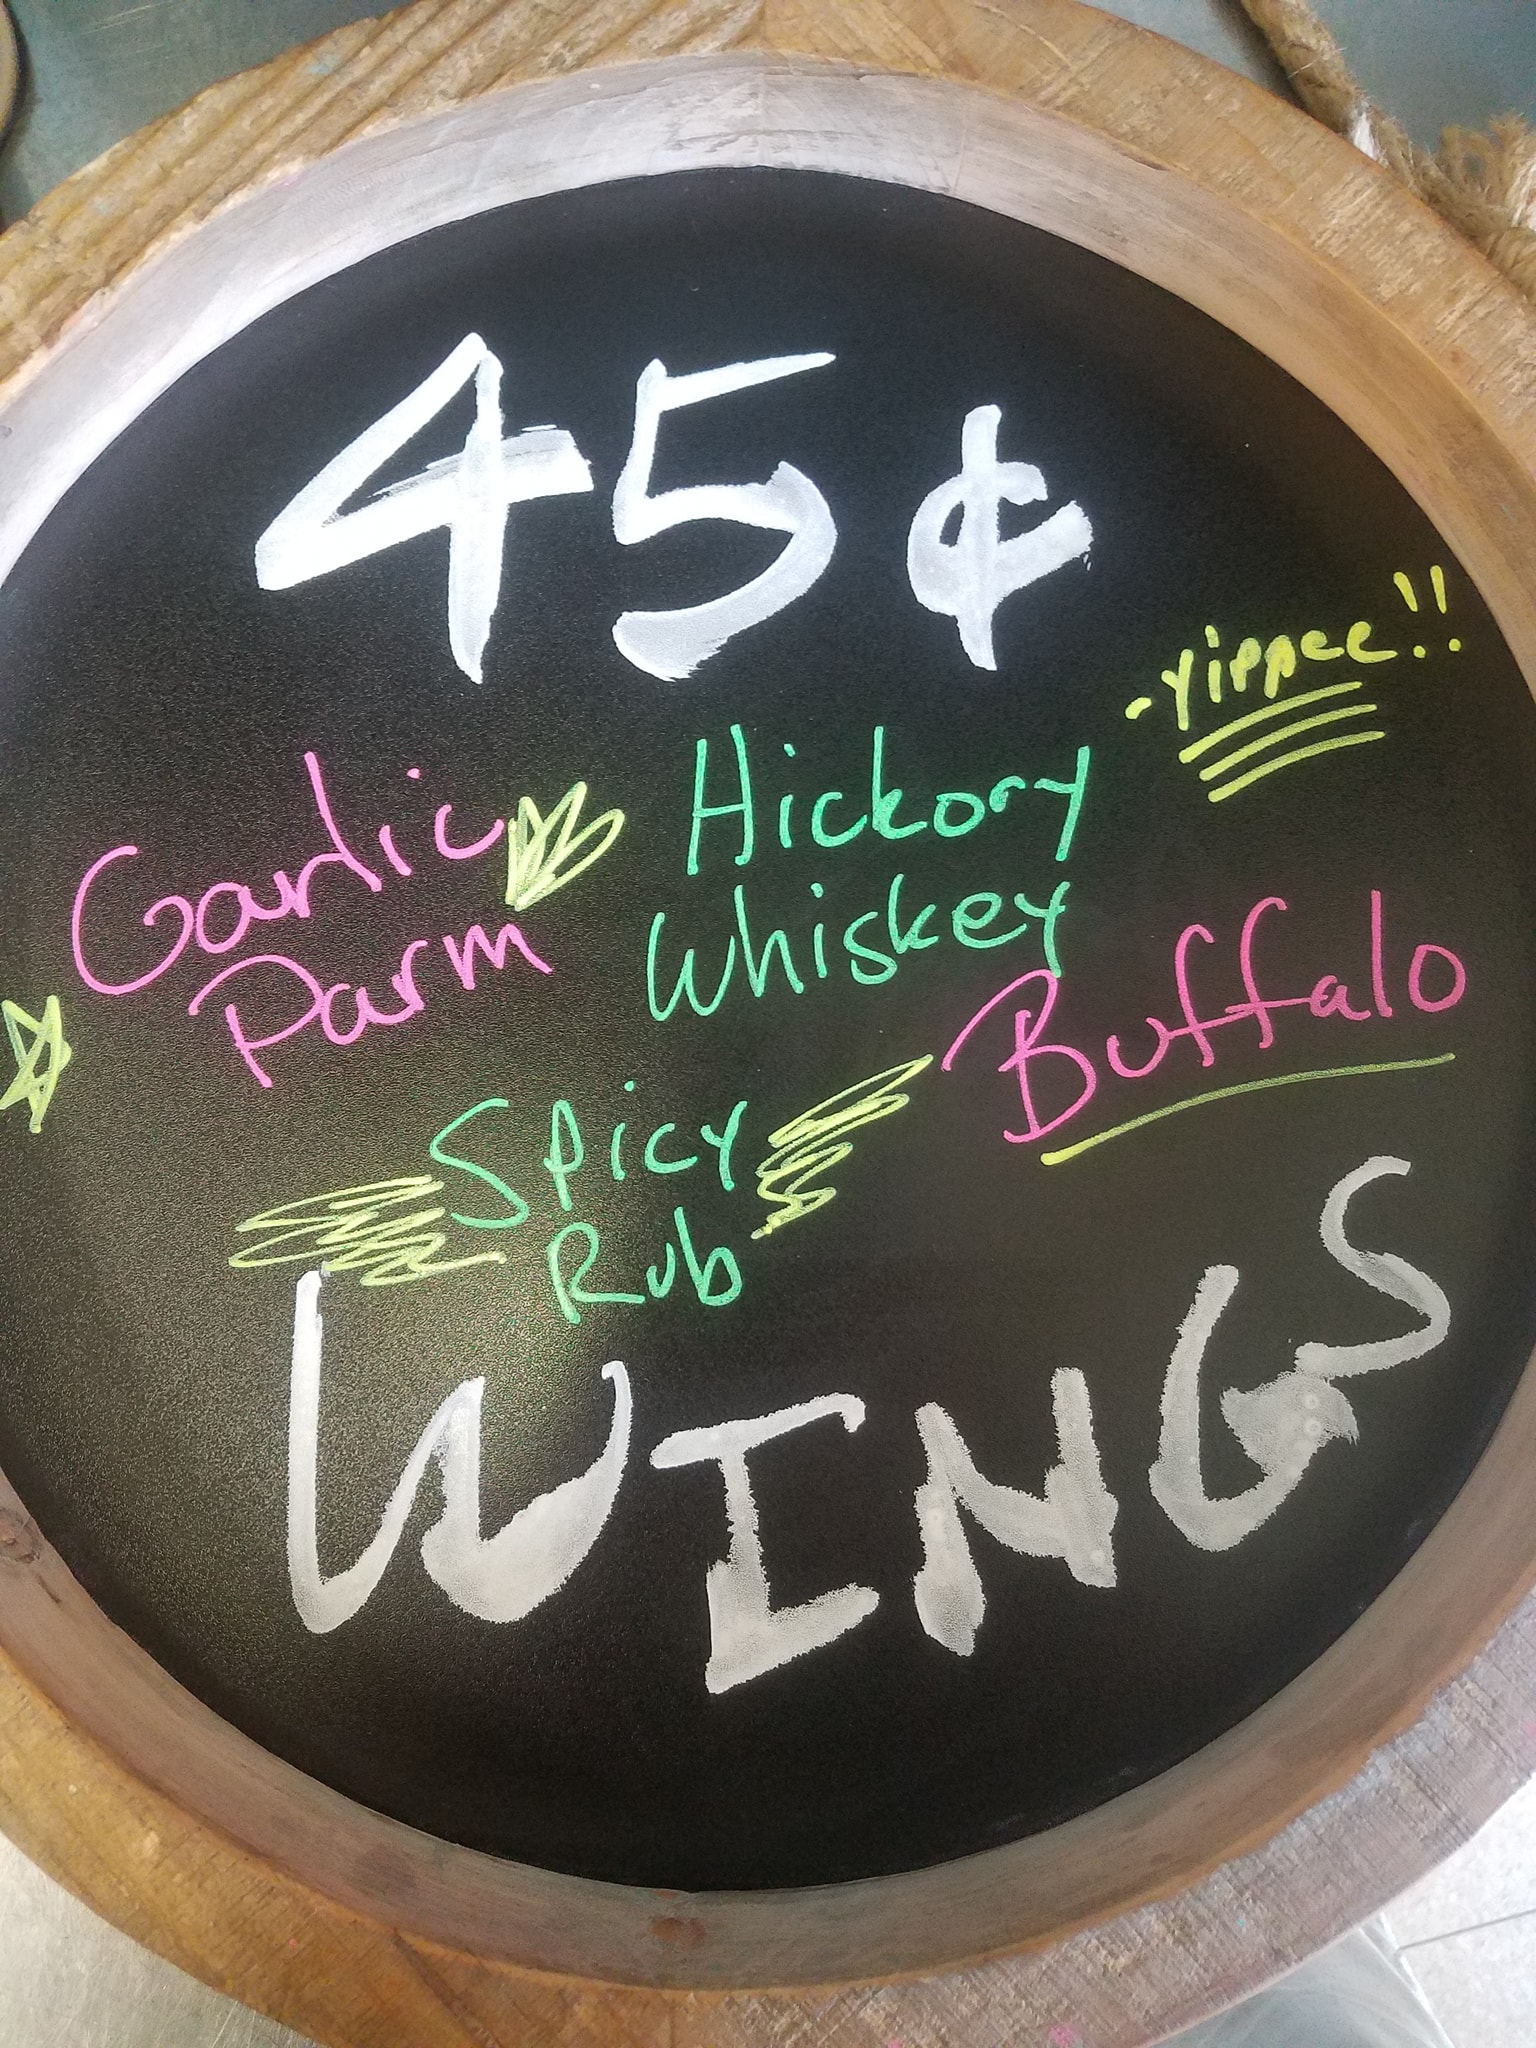 45¢
-Yippee!!
Garlic
Parm
Hickory
Whiskey
Buffalo
Spicy
Rub
WINGS